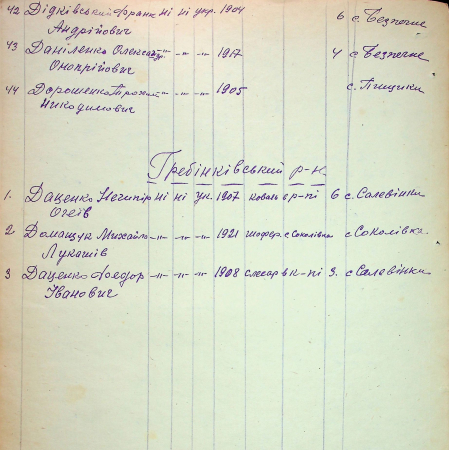 42 Дідківський Франк ні ні укр. 1904 6 с. Безпечне
Андрійович
43 Даніленко Олександр -"- -"- -"- 1917 4 с. Безпечне
Онопрійович
44 Дорошенко Трохим -"- -"- -"- 1905 с. Пищики
Никодимович
Гребінківський р-н
1. Даценко Нечипір ні ні ук. 1907 коваль в р-пі 6 с. Салевінки
2 Домащук Михайло -"- -"- -"- 1921 шофер. с. Соколівка с Соколівка.
Лукашів
3 Даценко Федор -"- -"- -"- 1908 слесар в к-пі 3. с Салевінки
Іванович